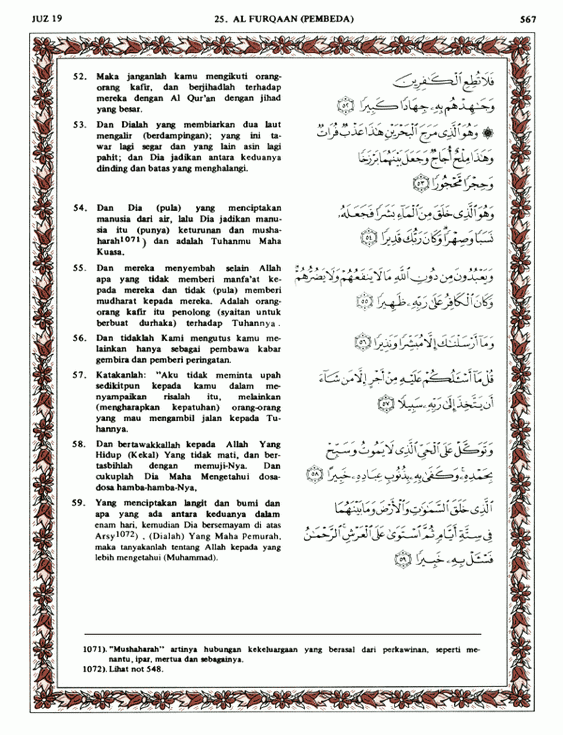 JUZ 19
25. AL FURQAAN (PEMBEDA)
567
52. Maka janganlah kamu mengikuti orang-
orang kafir, dan berjihadlah terhadap
mereka dengan Al Qur'an dengan jihad
yang besar.
53. Dan Dialah yang membiarkan dua laut
mengalir (berdampingan); yang ini ta-
war lagi segar dan yang lain asin lagi
pahit; dan Dia jadikan antara keduanya
dinding dan batas yang menghalangi.
54. Dan Dia (pula) yang menciptakan
manusia dari air, lalu Dia jadikan manu-
sia itu (punya) keturunan dan musha-
harah1071) dan adalah Tuhanmu Maha
Kuasa.
55. Dan mereka menyembah selain Allah
apa yang tidak memberi manfa'at ke-
pada mereka dan tidak (pula) memberi
mudharat kepada mereka. Adalah orang-
orang kafir itu penolong (syaitan untuk
berbuat durhaka) terhadap Tuhannya.
56. Dan tidaklah Kami mengutus kamu me-
lainkan hanya sebagai pembawa kabar
gembira dan pemberi peringatan.
57. Katakanlah: "Aku tidak meminta upah
sedikitpun kepada kamu dalam me-
nyampaikan risalah itu, melainkan
(mengharapkan kepatuhan) orang-orang
yang mau mengambil jalan kepada Tu-
hannya.
58. Dan bertawakkallah kepada Allah Yang
Hidup (Kekal) Yang tidak mati, dan ber-
tasbihlah dengan memuji-Nya. Dan
cukuplah Dia Maha Mengetahui dosa-
dosa hamba-hamba-Nya,
59. Yang menciptakan langit dan bumi dan
apa yang ada antara keduanya dalam
enam hari, kemudian Dia bersemayam di atas
Arsy1072), (Dialah) Yang Maha Pemurah,
maka tanyakanlah tentang Allah kepada yang
lebih mengetahui (Muhammad).
فَلَا تُطِعِ ٱلْكَٰفِرِينَ
وَجَٰهِدْهُم بِهِۦ جِهَادًا كَبِيرًا ٥٢
۞ وَهُوَ ٱلَّذِى مَرَجَ ٱلْبَحْرَيْنِ هَٰذَا عَذْبٌ فُرَاتٌ
وَهَٰذَا مِلْحٌ أُجَاجٌ وَجَعَلَ بَيْنَهُمَا بَرْزَخًا
وَحِجْرًا مَّحْجُورًا ٥٣
وَهُوَ ٱلَّذِى خَلَقَ مِنَ ٱلْمَآءِ بَشَرًا فَجَعَلَهُۥ
نَسَبًا وَصِهْرًا وَكَانَ رَبُّكَ قَدِيرًا ٥٤
وَيَعْبُدُونَ مِن دُونِ ٱللَّهِ مَا لَا يَنفَعُهُمْ وَلَا يَضُرُّهُمْ
وَكَانَ ٱلْكَافِرُ عَلَىٰ رَبِّهِۦ ظَهِيرًا ٥٥
وَمَآ أَرْسَلْنَٰكَ إِلَّا مُبَشِّرًا وَنَذِيرًا ٥٦
قُلْ مَآ أَسْـَٔلُكُمْ عَلَيْهِ مِنْ أَجْرٍ إِلَّا مَن شَآءَ
أَن يَتَّخِذَ إِلَىٰ رَبِّهِۦ سَبِيلًا ٥٧
وَتَوَكَّلْ عَلَى ٱلْحَىِّ ٱلَّذِى لَا يَمُوتُ وَسَبِّحْ
بِحَمْدِهِۦ وَكَفَىٰ بِهِۦ بِذُنُوبِ عِبَادِهِۦ خَبِيرًا ٥٨
ٱلَّذِى خَلَقَ ٱلسَّمَٰوَٰتِ وَٱلْأَرْضَ وَمَا بَيْنَهُمَا
فِى سِتَّةِ أَيَّامٍ ثُمَّ ٱسْتَوَىٰ عَلَى ٱلْعَرْشِ ٱلرَّحْمَٰنُ
فَسْـَٔلْ بِهِۦ خَبِيرًا ٥٩
1071). "Mushaharah" artinya hubungan kekeluargaan yang berasal dari perkawinan, seperti me-
nantu, ipar, mertua dan sebagainya.
1072). Lihat not 548.